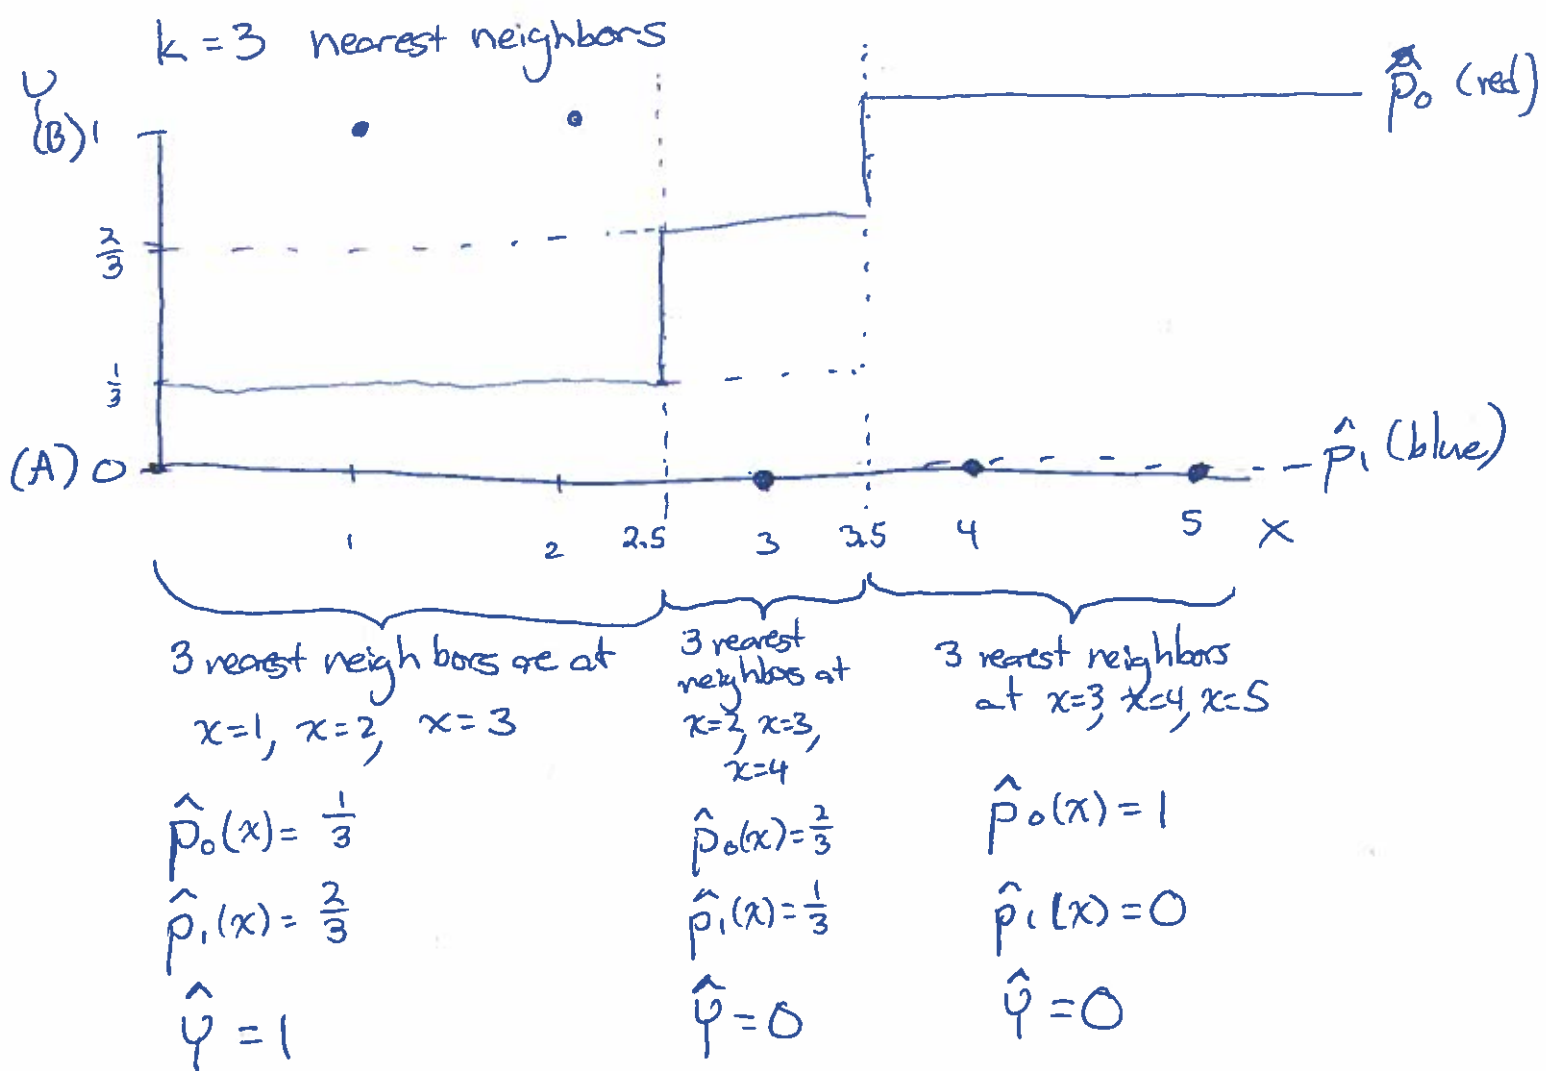 k = 3 nearest neighbors
p̂₀ (red)
(B) 1
2/3
1/3
(A) 0
p̂₁ (blue)
1 2 2.5 3 3.5 4 5 x
3 nearest neighbors are at
x=1, x=2, x=3
p̂₀(x) = 1/3
p̂₁(x) = 2/3
Ŷ = 1
3 nearest
neighbors at
x=2, x=3,
x=4
p̂₀(x) = 2/3
p̂₁(x) = 1/3
Ŷ = 0
3 nearest neighbors
at x=3, x=4, x=5
p̂₀(x) = 1
p̂₁(x) = 0
Ŷ = 0